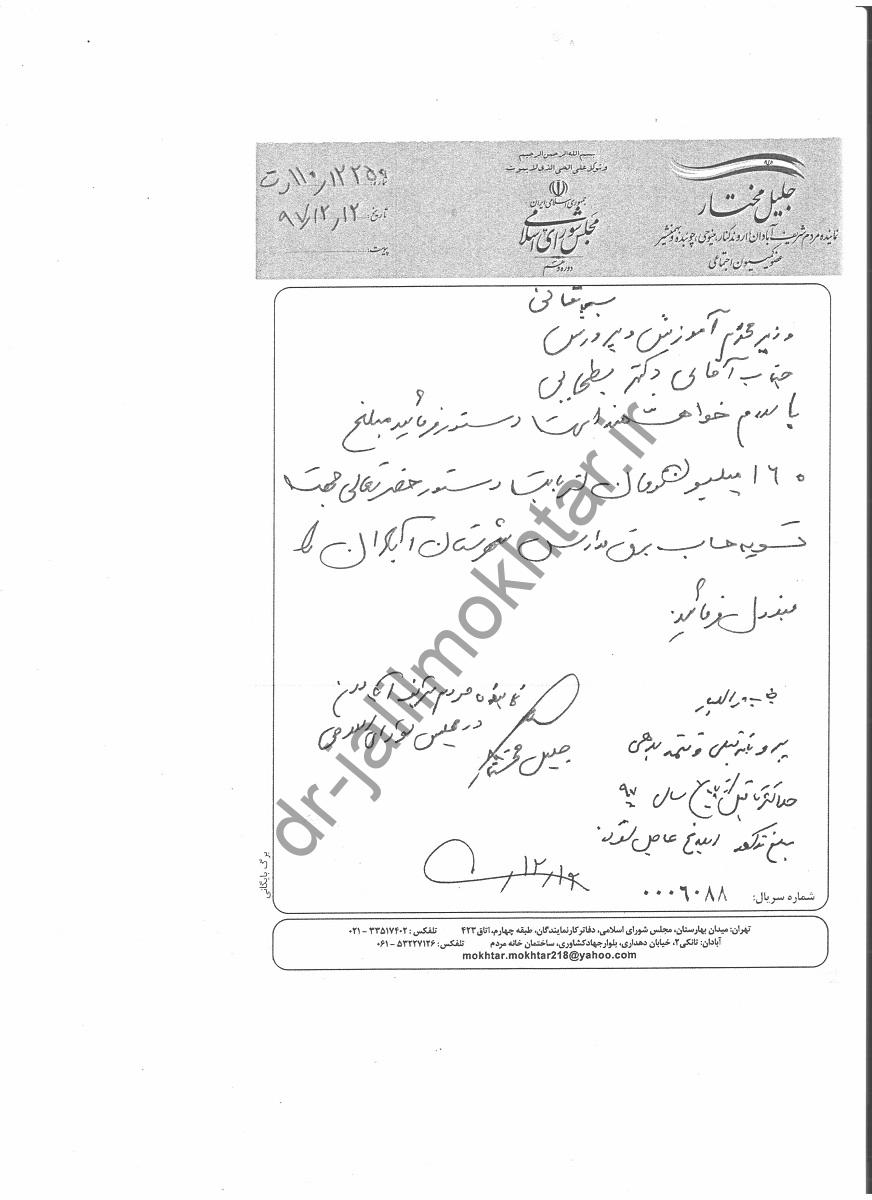 بسم الله الرحمن الرحیم
و توکل علی الحی الذی لا یموت
جمهوری اسلامی ایران
مجلس شورای اسلامی
دوره دهم
جلیل مختار
نماینده مردم شریف آبادان، اروندکنار، مینوحی، چوئبده و بهمنشیر
عضو کمیسیون اجتماعی
۱۲۲۵۹/۱۱۰/ت
تاریخ: ۹۷/۱۲/۱۲
پیوست:
بسمه تعالی
وزیر محترم آموزش و پرورش
جناب آقای دکتر بطحایی
با سلام خواهشمند است دستور فرمائید مبلغ
۱۶۰ میلیون تومان دستور حضرتعالی جهت
تسویه حساب برق مدارس شهرستان آبادان را
مبذول فرمائید.
نماینده مردم شریف آبادان
در مجلس شورای اسلامی
جلیل مختار
بدهی
حداکثر تا قبل از سال ۹۷
مبلغ مذکور حاصل شود.
۱۲/۱۲
شماره سریال: ۰۰۰۶۰۸۸
برگ بایگانی
تهران: میدان بهارستان، مجلس شورای اسلامی، دفاتر کار نمایندگان، طبقه چهارم، اتاق ۴۲۳ تلفکس: ۳۳۵۱۷۴۰۲ - ۰۲۱
آبادان: تانکی۲، خیابان دهداری، بلوار جهاد کشاورزی، ساختمان خانه مردم تلفکس: ۵۳۲۲۷۱۲۶ - ۰۶۱
mokhtar.mokhtar218@yahoo.com
dr-jalilmokhtar.ir